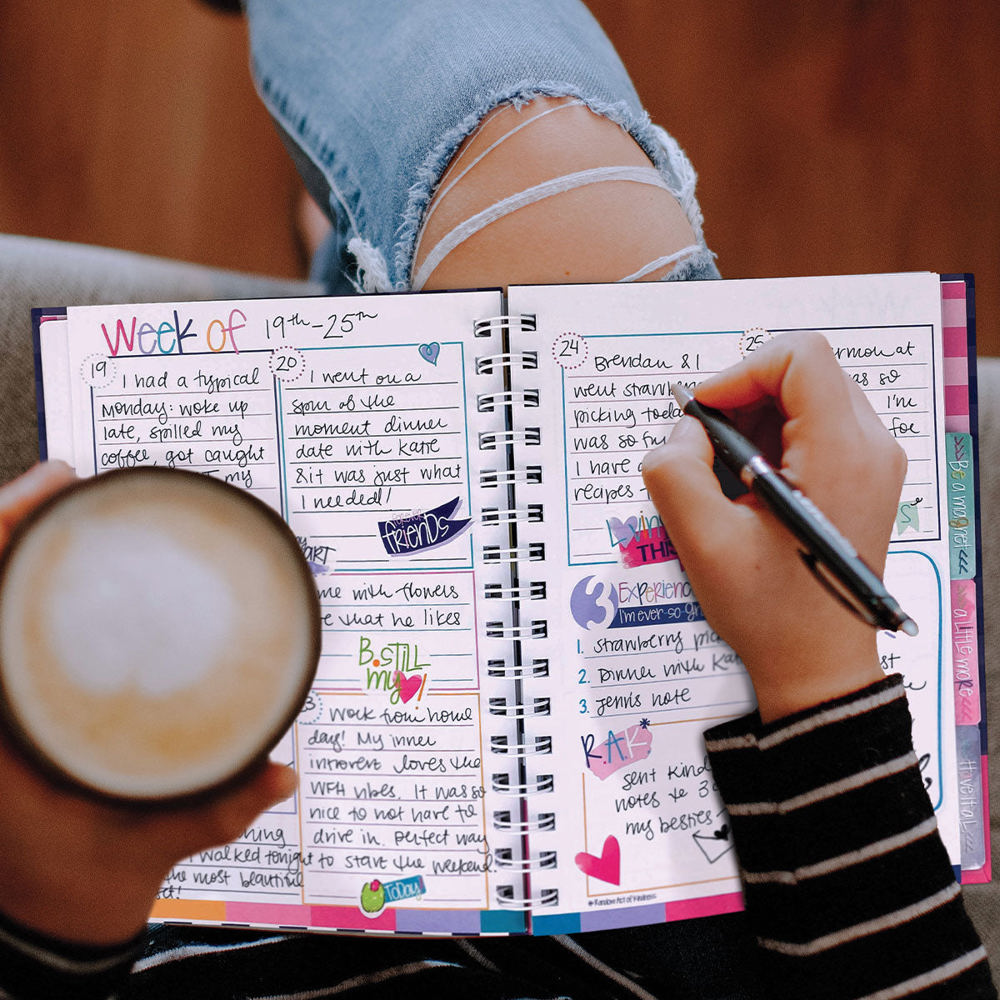 Week of 19th-25th
19
I had a typical
Monday: woke up
late, spilled my
coffee, got caught
my
20
I went on a
spur of the
moment dinner
date with Kate
& it was just what
I needed!
FOREVER
friends
ART
me with flowers
e that he likes
B.STILL
my!
3 Work from home
day! My inner
introvert loves the
WFH vibes. It was so
nice to not have to
drive in. Perfect way
to start the weekend.
TODAY
walked tonight
the most beautiful
24
Brendan & I
went strawb
picking toda
was so fu
I have a
recipes
LOVIN
THIS
25
ermon at
as so
I'm
for
3 EXPERIENC
I'm ever-so-gr
1. Strawberry pic
2. Dinner with Kat
3. Jen's note
st
R.A.K*
Sent kind
notes to 3
my besties
*Random Act of Kindness
Be a magnet <<<
a little more <<<
#lovethat <<<